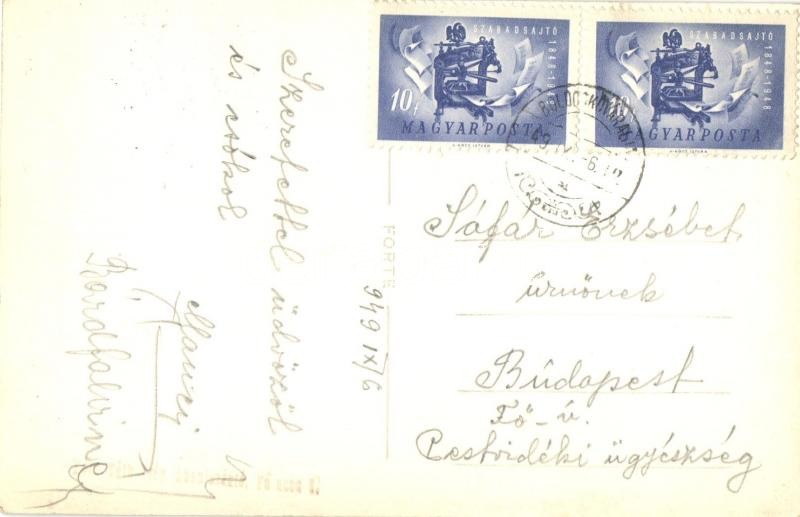 SZABADSAJTÓ
1848-19
10f
MAGYAR POSTA
SZABADSAJTÓ
1848-1948
MAGYAR POSTA
Szeretettel üdvözöl
és csókol
Manci
Bárdfalviné
FORTE
949 IX/6
Sáfár Erzsébet
úrnőnek
Budapest
Fő-u.
Pestvidéki ügyészség